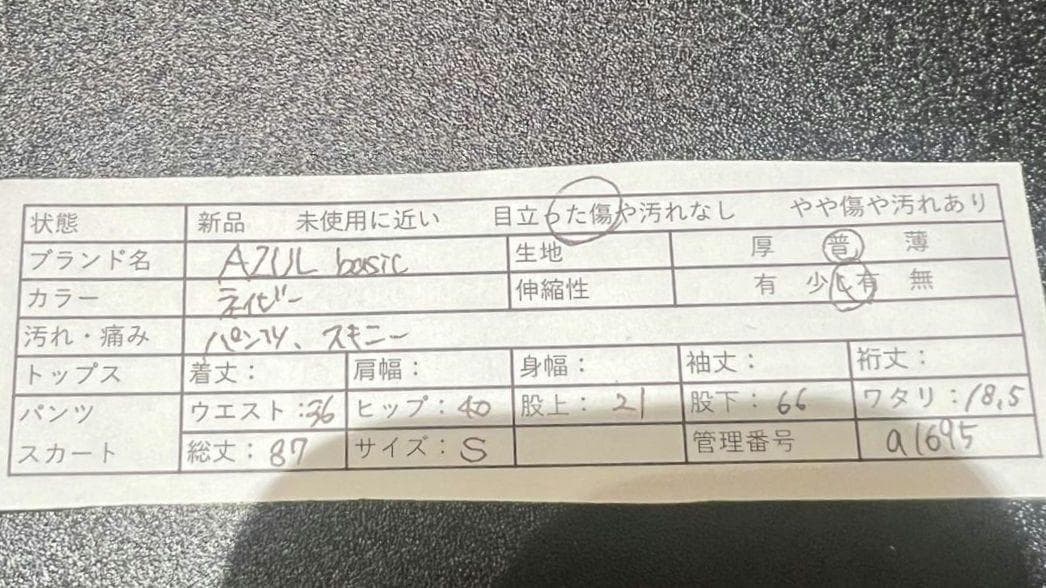 状態 新品 未使用に近い 目立った傷や汚れなし やや傷や汚れあり
ブランド名 AZUL basic 生地 厚 普 薄
カラー ネイビー 伸縮性 有 少し有 無
汚れ・痛み パンツ、スキニー
トップス 着丈: 肩幅: 身幅: 袖丈: 裄丈:
パンツ ウエスト:36 ヒップ:40 股上:21 股下:66 ワタリ:18.5
スカート 総丈:87 サイズ:S 管理番号 a1695